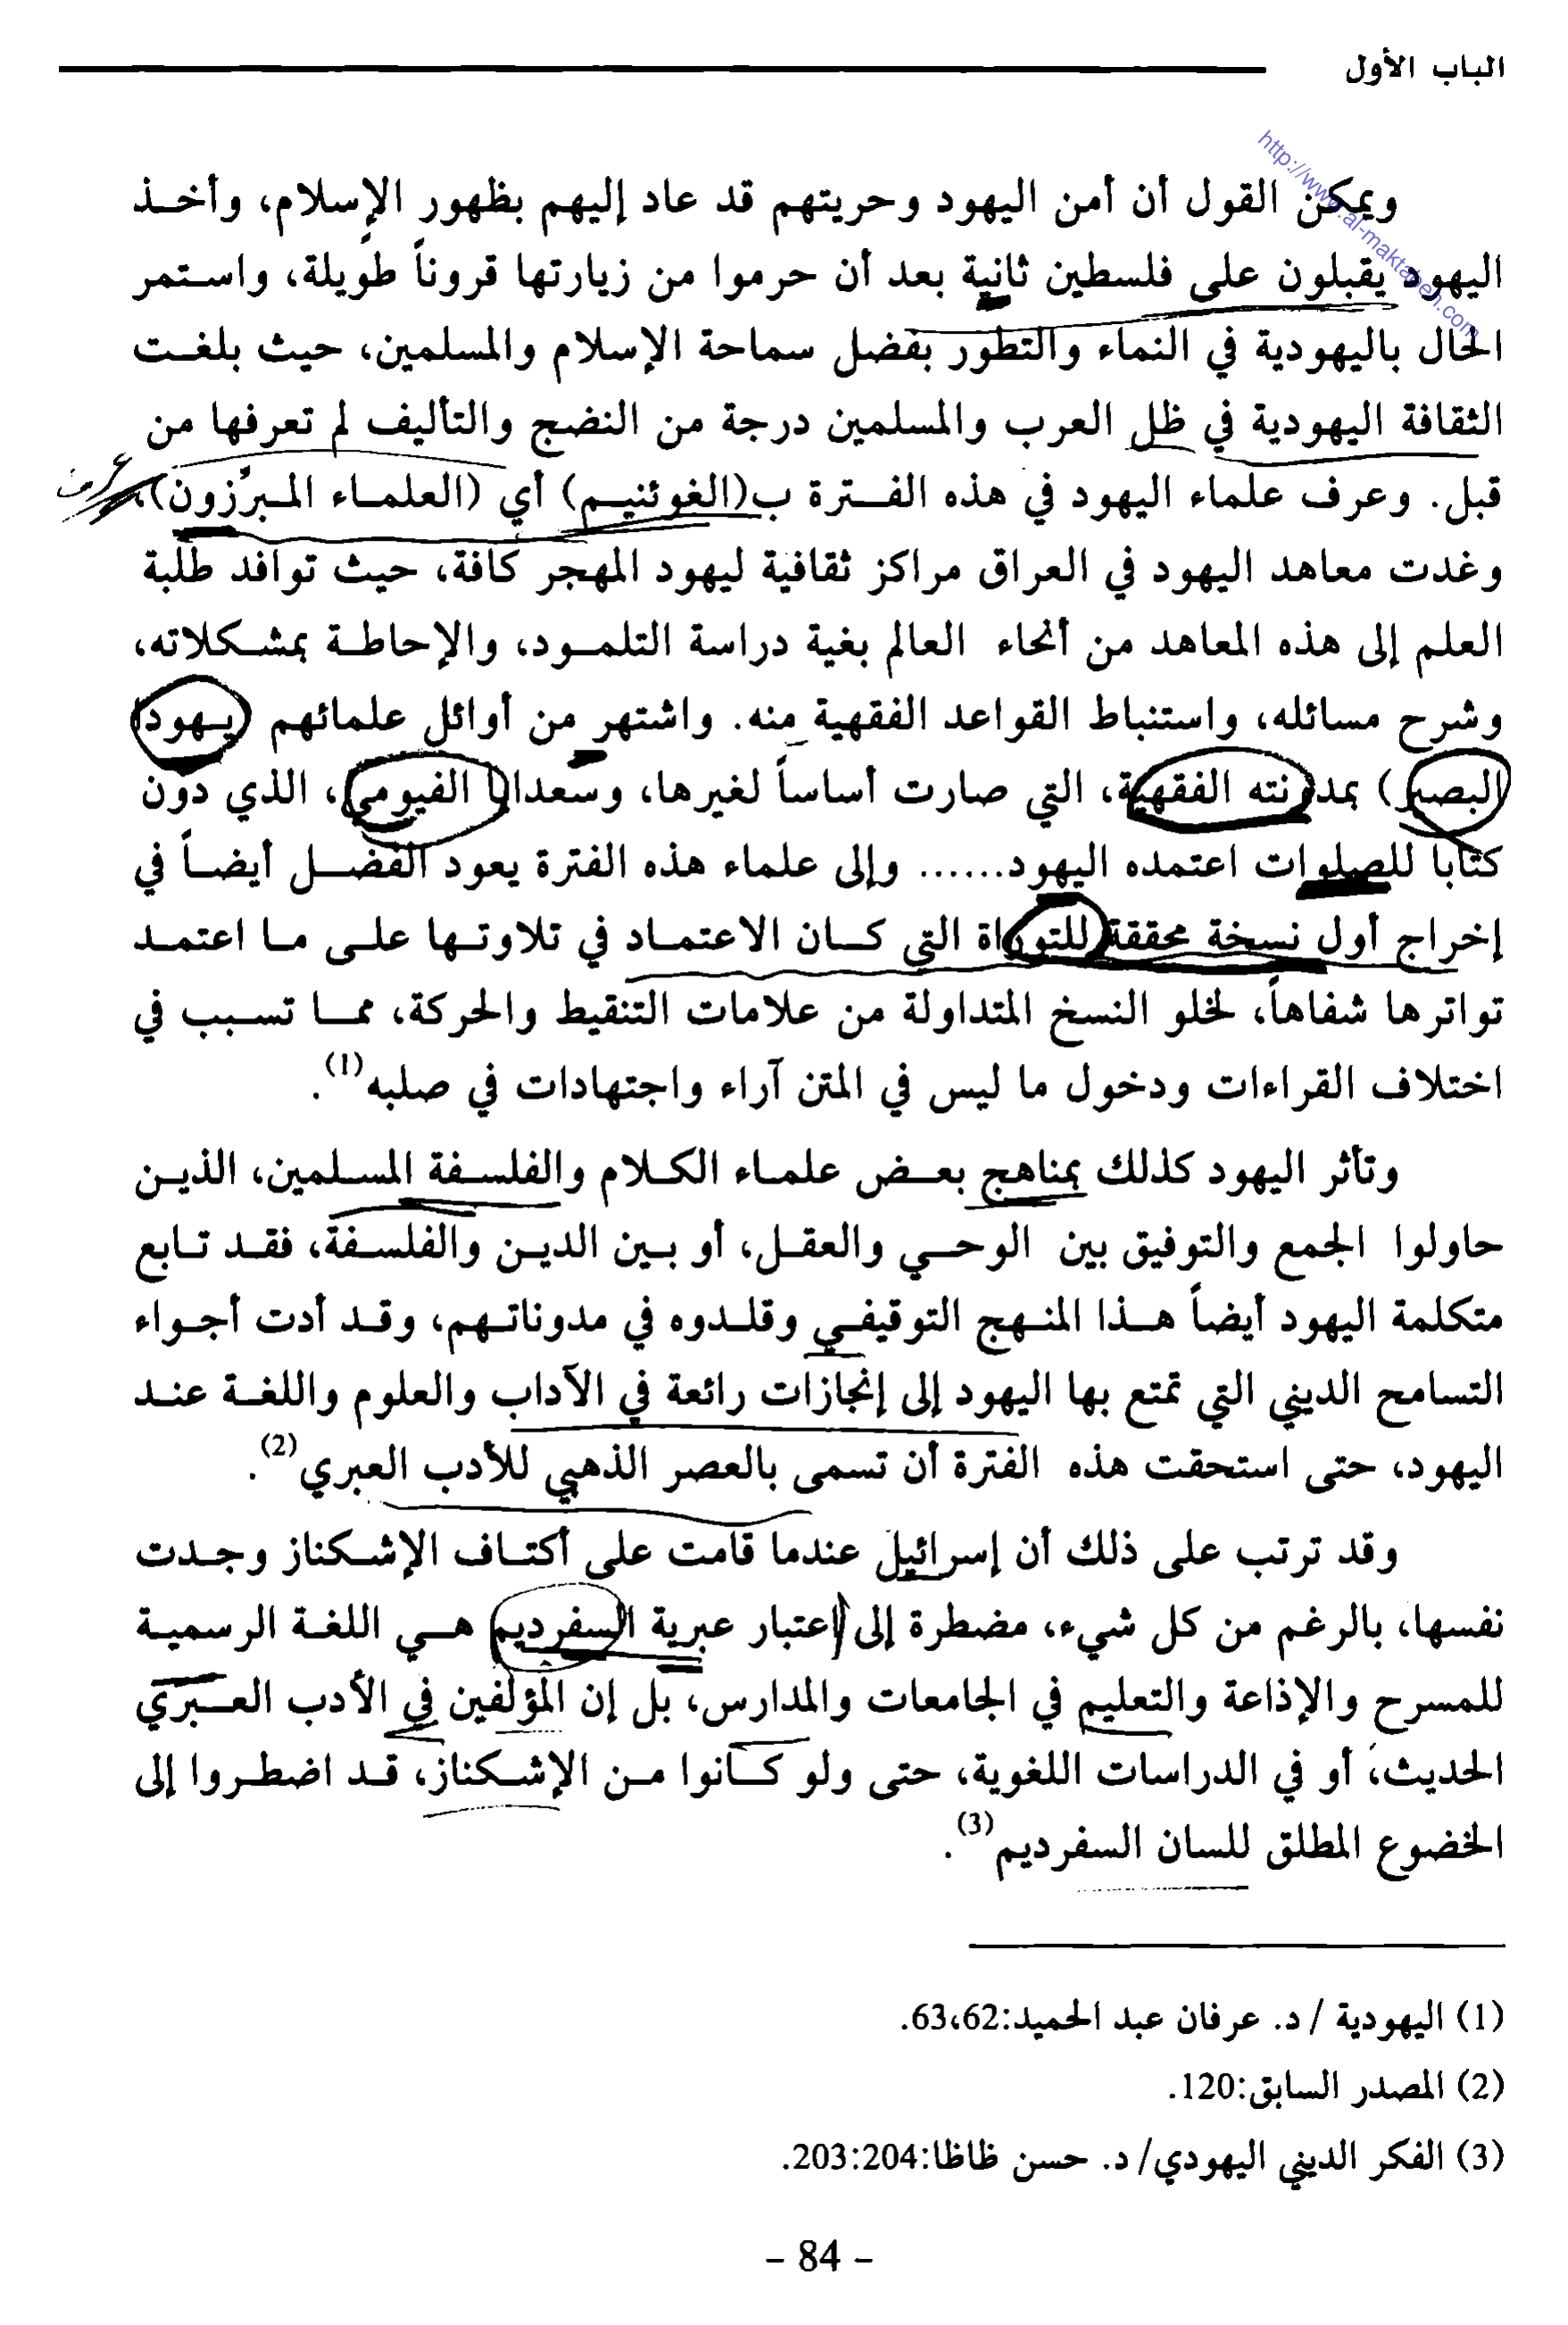 الباب الأول
http://www.al-maktabeh.com
ويمكن القول أن أمن اليهود وحريتهم قد عاد إليهم بظهور الإسلام، وأخذ
اليهود يقبلون على فلسطين ثانية بعد أن حرموا من زيارتها قروناً طويلة، واستمر
الحال باليهودية في النماء والتطور بفضل سماحة الإسلام والمسلمين، حيث بلغت
الثقافة اليهودية في ظل العرب والمسلمين درجة من النضج والتأليف لم تعرفها من
قبل. وعرف علماء اليهود في هذه الفترة ب(الغوئنيم) أي (العلماء المبرّزون)،
وغدت معاهد اليهود في العراق مراكز ثقافية ليهود المهجر كافة، حيث توافد طلبة
العلم إلى هذه المعاهد من أنحاء العالم بغية دراسة التلمود، والإحاطة بمشكلاته،
وشرح مسائله، واستنباط القواعد الفقهية منه. واشتهر من أوائل علمائهم (يهودا
البصير) بمدونته الفقهية، التي صارت أساساً لغيرها، وسعدايا الفيومي، الذي دون
كتاباً للصلوات اعتمده اليهود...... وإلى علماء هذه الفترة يعود الفضل أيضاً في
إخراج أول نسخة محققة للتوراة التي كان الاعتماد في تلاوتها على ما اعتمد
تواترها شفاهاً، لخلو النسخ المتداولة من علامات التنقيط والحركة، مما تسبب في
اختلاف القراءات ودخول ما ليس في المتن آراء واجتهادات في صلبه(1).
وتأثر اليهود كذلك بمناهج بعض علماء الكلام والفلسفة المسلمين، الذين
حاولوا الجمع والتوفيق بين الوحي والعقل، أو بين الدين والفلسفة، فقد تابع
متكلمة اليهود أيضاً هذا المنهج التوقيفي وقلدوه في مدوناتهم، وقد أدت أجواء
التسامح الديني التي تمتع بها اليهود إلى إنجازات رائعة في الآداب والعلوم واللغة عند
اليهود، حتى استحقت هذه الفترة أن تسمى بالعصر الذهبي للأدب العبري(2).
وقد ترتب على ذلك أن إسرائيل عندما قامت على أكتاف الإشكناز وجدت
نفسها، بالرغم من كل شيء، مضطرة إلى اعتبار عبرية السفرديم هي اللغة الرسمية
للمسرح والإذاعة والتعليم في الجامعات والمدارس، بل إن المؤلفين في الأدب العبري
الحديث، أو في الدراسات اللغوية، حتى ولو كانوا من الإشكناز، قد اضطروا إلى
الخضوع المطلق للسان السفرديم(3).
(1) اليهودية / د. عرفان عبد الحميد:62،63.
(2) المصدر السابق:120.
(3) الفكر الديني اليهودي/ د. حسن ظاظا:203:204.
- 84 -